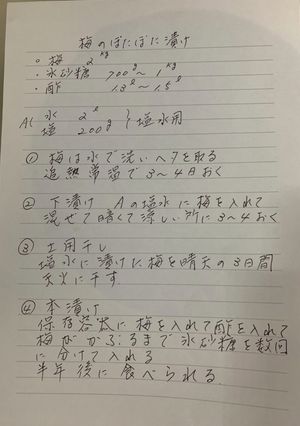 梅のぽたぽた漬け
・梅 2kg
・氷砂糖 700g〜1kg
・酢 1.3ℓ〜1.5ℓ
A( 水 2ℓ
塩 200g } 塩水用
① 梅は水で洗いヘタを取る
追熟 常温で3〜4日おく
② 下漬け Aの塩水に梅を入れて
混ぜて暗くて涼しい所に3〜4おく
③ 土用干し
塩水に漬けた梅を晴天の3日間
天火に干す
④ 本漬け
保存容太に梅を入れて酢を入れて
梅がかぶるまで氷砂糖を数回
に分けて入れる
半年後に食べられる